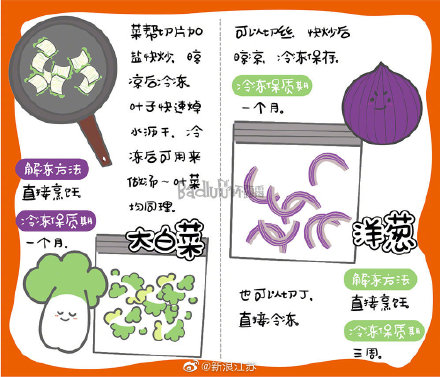 菜帮切片加
盐快炒,晾
凉后冷冻。
叶子快速焯
水沥干,冷
冻后可用来
做汤~叶菜
均同理。
解冻方法
直接烹饪
冷冻保质期
一个月.
大白菜
可以切丝,快炒后
晾凉,冷冻保存.
冷冻保质期
一个月.
洋葱
也可以切丁,
直接冷冻.
解冻方法
直接烹饪
冷冻保质期
三周.
@新浪江苏